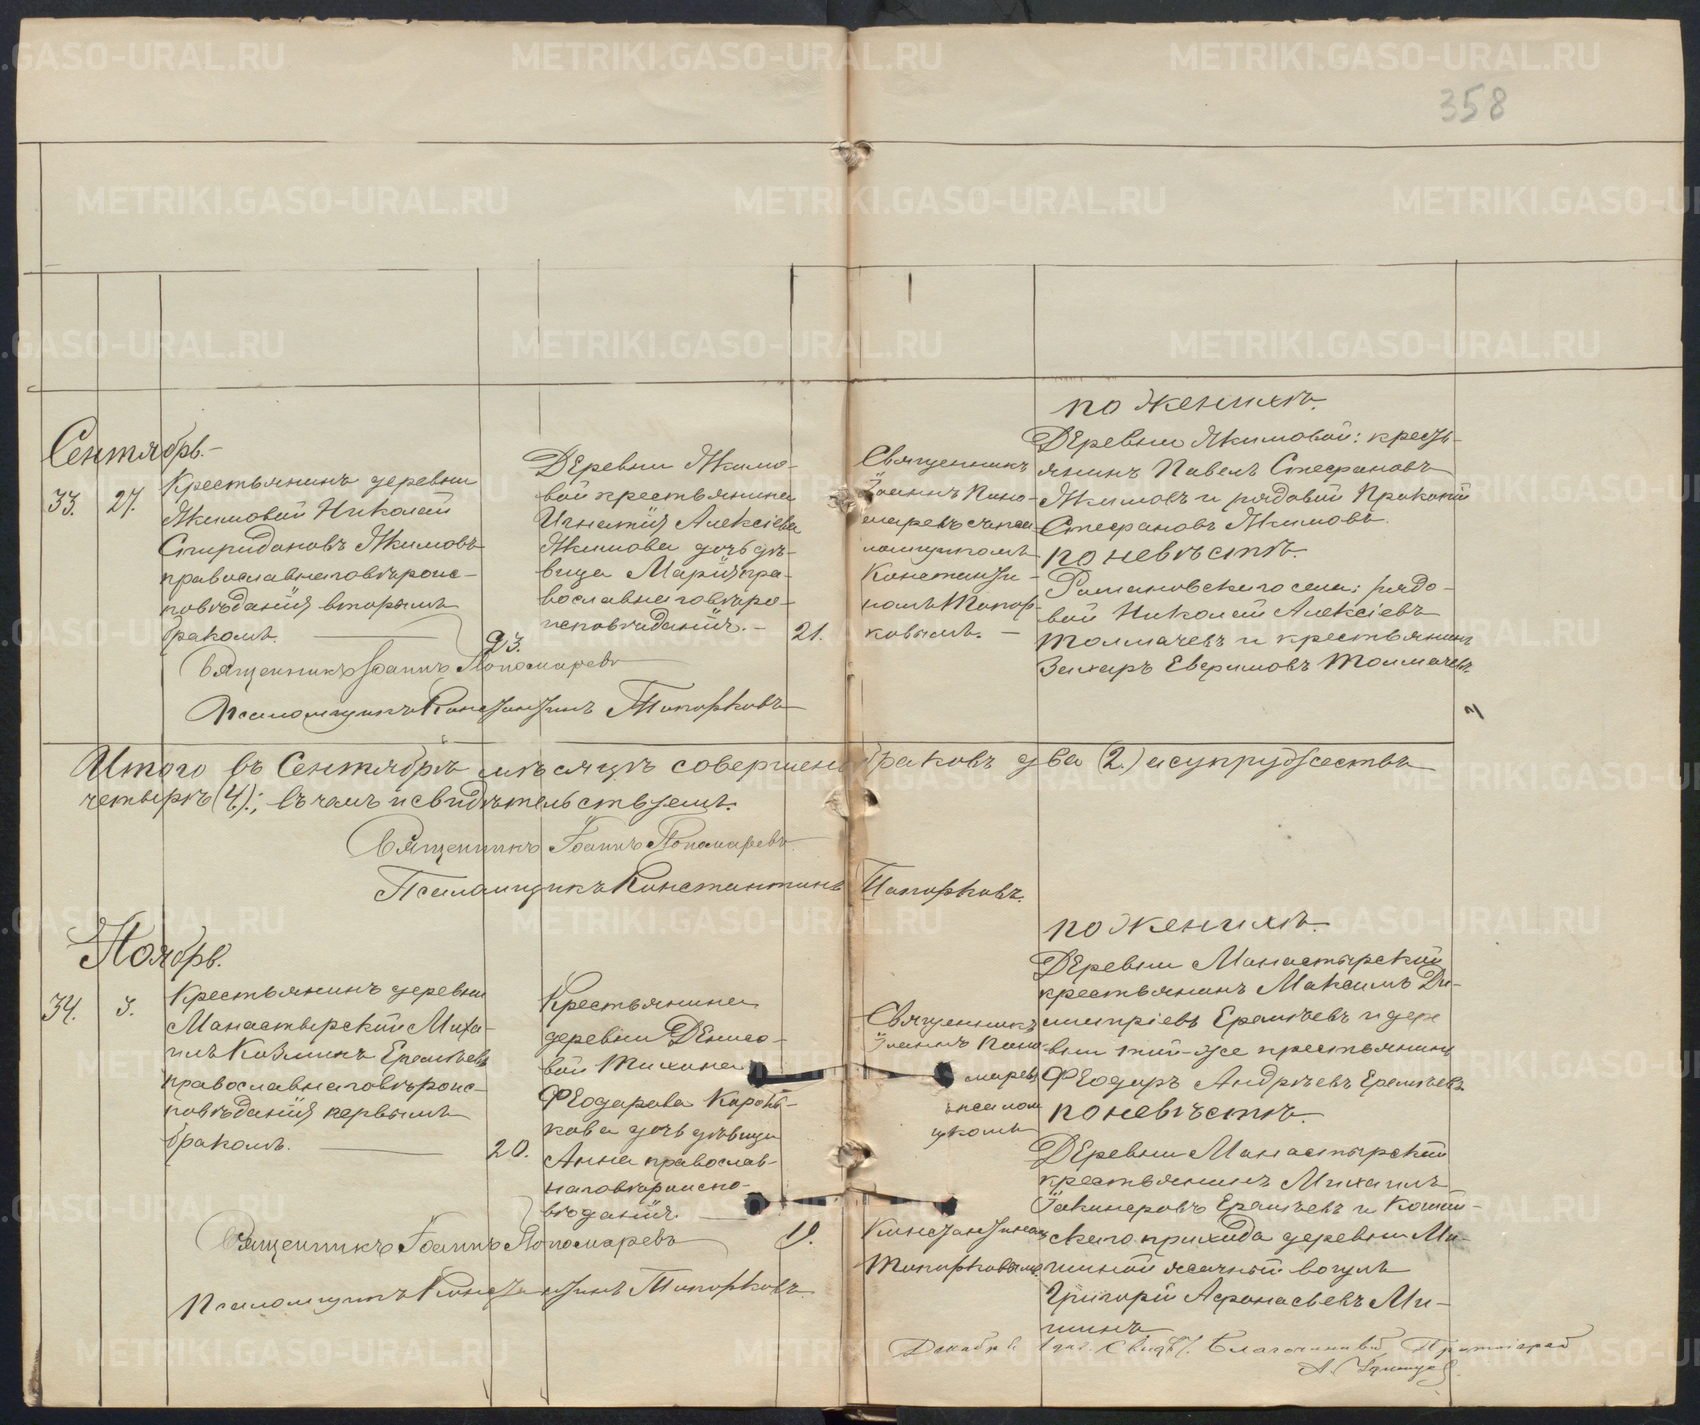 358
Сентябрь.
33.
27.
Крестьянинъ деревни
Якимовой Николай
Спиридоновъ Якимовъ
православнаго вѣроис-
повѣданія вторымъ
бракомъ.
23.
Деревни Якимо-
вой крестьянина
Игнатія Алексіева
Якимова дочь дѣ-
вица Марія пра-
вославнаго вѣро-
исповѣданія.
21.
Священникъ
Іоаннъ Поно-
маревъ съ псал-
омщикомъ
Константи-
номъ Топор-
ковымъ.
по женихѣ.
Деревни Якимовой: кресть-
янинъ Павелъ Стефановъ
Якимовъ и рядовой Прокопій
Стефановъ Якимовъ.
по невѣстѣ.
Романовскаго села: рядо-
вой Николай Алексіевъ
Толмачевъ и крестьянинъ
Захаръ Евфимовъ Толмачевъ
Священникъ Іоаннъ Пономаревъ
Псаломщикъ Константинъ Топорковъ
Итого въ Сентябрѣ мѣсяцѣ совершено браковъ два (2.) и супружествъ
четыре (4.); въ чемъ и свидѣтельствуемъ.
Священникъ Іоаннъ Пономаревъ
Псаломщикъ Константинъ Топорковъ.
Ноябрь.
34.
3.
Крестьянинъ деревни
Манастырской Миха-
илъ Козминъ Еремѣевъ
православнаго вѣроис-
повѣданія первымъ
бракомъ.
20.
Крестьянина
деревни Денисо-
вой Тихона
Феодорова Коронь-
кова дочь дѣвица
Анна православ-
наго вѣроиспо-
вѣданія.
19.
Священникъ
Іоаннъ Поно-
маревъ
псалом
щкомъ
Константиномъ
Топорковымъ
по женихѣ.
Деревни Манастырской
крестьянинъ Максимъ Ди-
митріевъ Еремѣевъ и дере
вни той-же крестьянинъ
Феодоръ Андрѣевъ Еремѣевъ
по невѣстѣ.
Деревни Манастырской
крестьянинъ Михаилъ
Еремѣевъ и
скаго прихода деревни Ми-
шиной ясачный вогулъ
Григорій Афонасьевъ Ми-
шинъ
Священникъ Іоаннъ Пономаревъ
Псаломщикъ Константинъ Топорковъ
Декабря 1 дня. Свидѣт. Благочинный Протоіерей